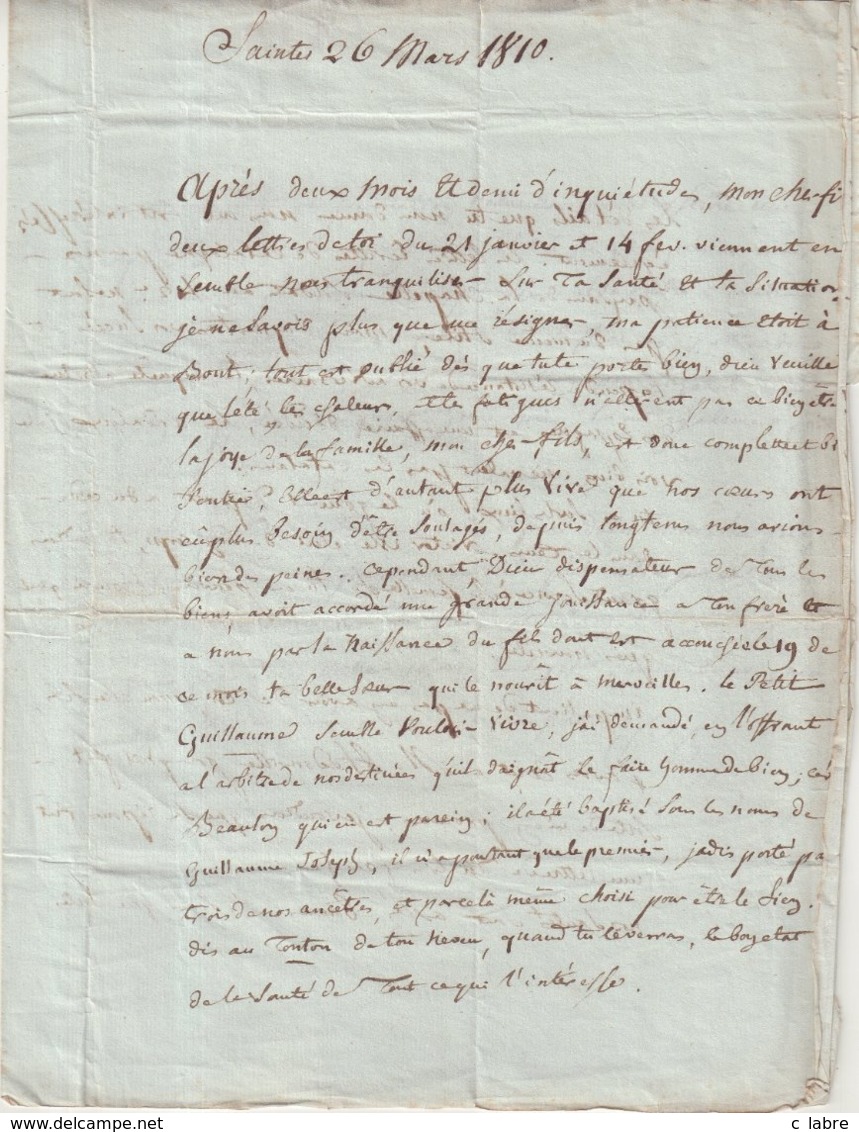 Saintes 26 Mars 1810.
Après deux mois Et demi d'inquiétudes, mon cher fi
deux lettres de toi du 21 janvier et 14 fev. viennent en
semble nous tranquiliser sur ta Santé et ta Situation
je ne savois plus que me résigner, ma patience etoit à
Bout; tout est oublié dès que tu te porte bien, dieu Veuille
que l'été les chaleurs, et les fatigues n'altèrent pas ce bien etre
la joye de la famille, mon cher fils, est donc complette et bi
Sentie, Elle est d'autant plus Vive que nos cœurs ont
eû plus Besoin d'être Soulagés, depuis longtems nous avions
bien des peines.. cependant Dieu dispensateur de Tous les
biens avoit accordé une grande Jouissance a Ton frere et
a nous par la Naissance du fils dont est accouchée le 19 de
ce mois ta belle Sœur qui le nourît à merveilles. le Petit
Guillaume Semble Vouloir Vivre, j'ai demandé, en l'offrant
a l'arbitre de nos destinées qu'il daignât le faire homme de bien; c'es
Beaulon qui en est parein; il a été baptisé sous les noms de
Guillaume Joseph, il n'a pourtant que le premier, jadis porté pa
trois de nos ancêtres, et par celà même choisi pour être le Sien.
dis au Tonton de ton Neveu, quand tu le verras, le bon etat
de la Santé de Tout ce qui l'intéresse.
c labre